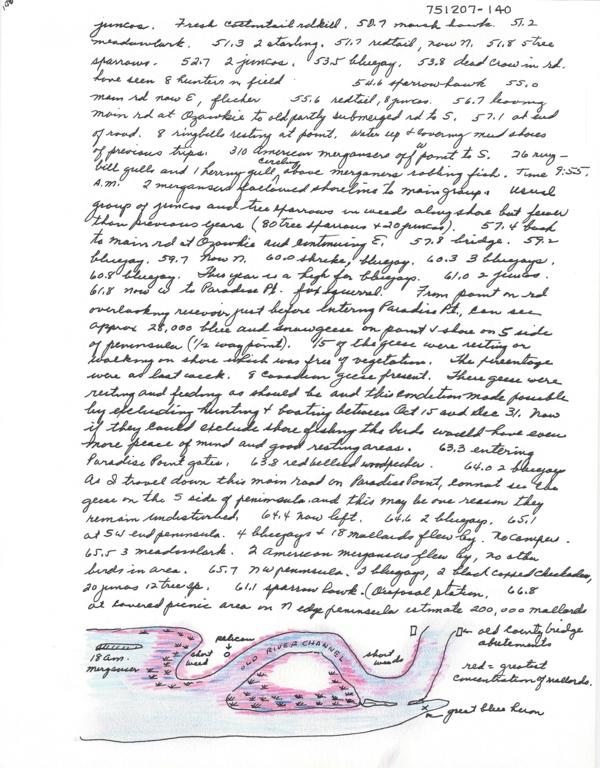 751207-140
juncos. Fresh cottontail rdkill. 50.7 marsh hawk. 51.2
meadowlark. 51.3 2 starling. 51.7 redtail, now N. 51.8 5 tree
sparrows. 52.7 2 juncos. 53.5 bluejay. 53.8 dead crow in rd.
have seen 8 hunters in field 54.6 sparrow hawk 55.0
main rd now E, flicker 55.6 redtail, 8 juncos. 56.7 leaving
main rd at Ozawkie to old partly submerged rd to S. 57.1 at end
of road. 8 ringbills resting at point. Water up & covering mud shores
of previous trips. 310 American mergansers off W point to S. 26 ring-
bill gulls and 1 herring gull circling above mergansers robbing fish. Time 9:55.
A.M. 2 mergansers shoreline to main group. Usual
group of juncos and tree sparrows in weed along shore but fewer
than previous years (80 tree sparrows & 20 juncos). 57.4 back
to main rd at Ozawkie and continuing E. 57.8 bridge. 59.2
bluejay. 59.7 Now N. 60.0 shrike, bluejay. 60.3 3 bluejays.
60.8 bluejay. This year is a high for bluejays. 61.0 2 juncos.
61.8 now W to Paradise Pt. fox squirrel. From point on rd
overlooking resevoir just before entering Paradise Pt, can see
approx 28,000 blue and snow geese on point & shore on S side
of peninsula (1/2 way point). 1/5 of the geese were resting or
walking on shore which was free of vegetation. The percentage
were as last week. 8 Canadian geese present. These geese were
resting and feeding as should be and this condition made possible
by excluding hunting & boating between Oct 15 and Dec 31. Now
if they could exclude shore fishing the birds would have even
more peace of mind and good resting areas. 63.3 entering
Paradise Point gates. 63.8 red bellied woodpecker. 64.0 2 bluejays
As I travel down this main road on Paradise Point, cannot see the
geese on the S side of peninsula and this may be one reason they
remain undisturbed. 64.4 now left. 64.6 2 bluejays. 65.1
at SW end peninsula. 4 bluejays & 18 mallards flew by. No campers.
65.5 3 meadowlark. 2 American mergansers flew by, no other
birds in area. 65.7 NW peninsula. 2 bluejays, 2 black capped chickadees,
20 juncos 12 tree sp. 61.1 sparrow hawk. (Disposal station. 66.8
at covered picnic area on N edge peninsula estimate 200,000 mallards
18 Am. merganser
short weed
pelican
OLD RIVER CHANNEL
short weeds
old County bridge abutements
red = greatest concentration of mallards.
great blue heron